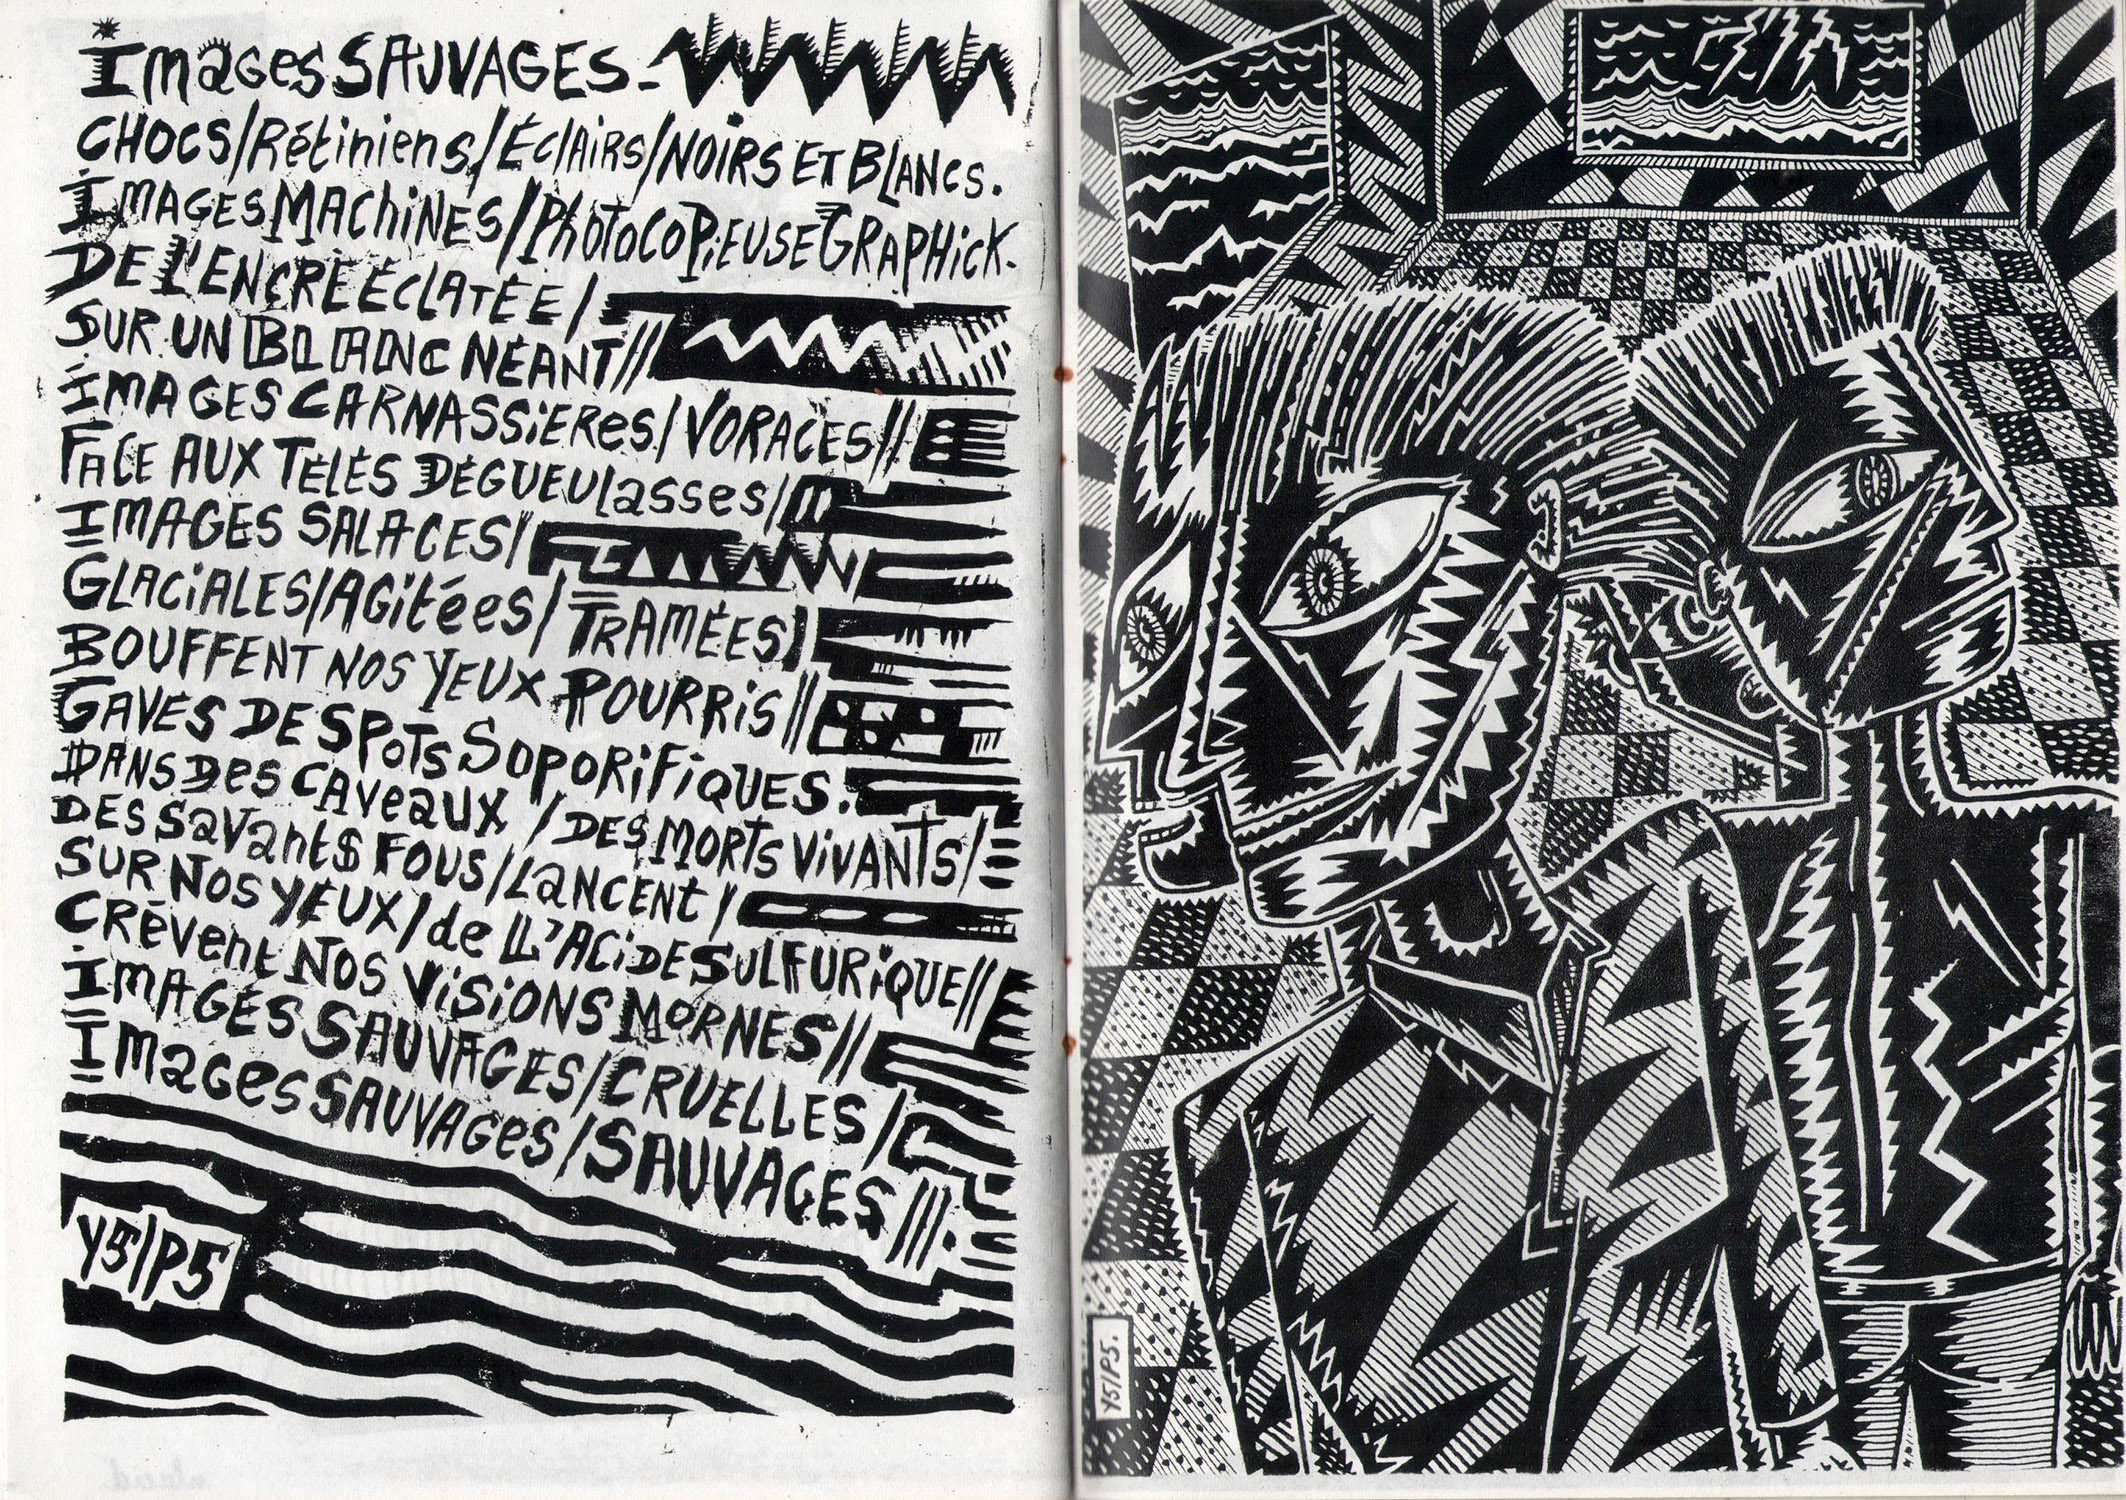 Images SAUVAGES.-
CHOCS/Rétiniens/ÉclAirs/NOIRS ET BLANCS.
IMAGES MAChiNES/PhOTOCOPiEUSE GRAPHicK.
DE L'ENCRE ÉCLATÉE/
SUR UN BLANC NÉANT//
IMAGES CARNASSiEReS/VORACES//
FACE AUX TÉLÉS DÉGUEULasses/
IMAGES SALACES/
GLACiALES/AGitées/TRAMÉES/
BOUFFENT NOS YEUX POURRiS//
GAVÉS DE SPOTS SOPORiFiQUES.
DANS DeS CAVeaUX/DES MORTS ViVANTS/
DES SaVantS FOUS/LaNCENT/
SUR NOS YEUX/de LL'ACiDE SULFURiQUE//
CRèvent NOS ViSiONS MORNES//
IMAGES SAUVAGES/CRUELLES/
ImaGes SAUVAGeS/SAUVAGES///.
Y5/P5
Y5/P5.